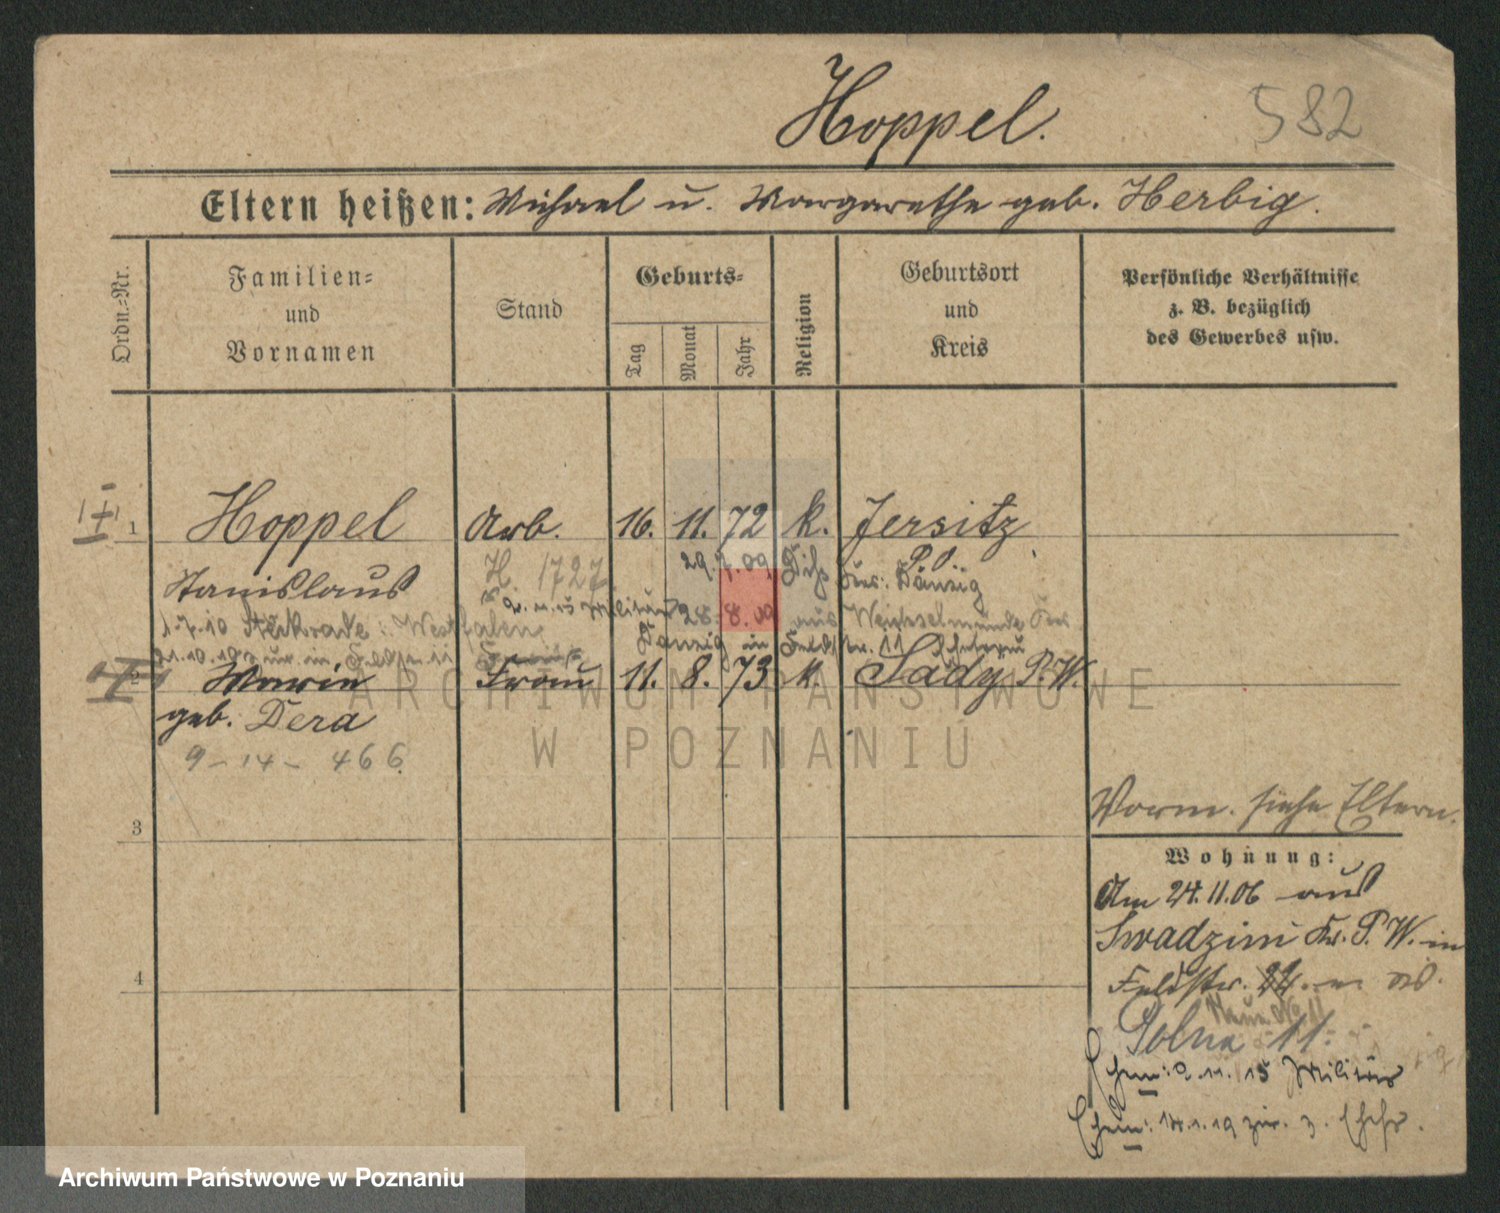 Hoppel.
582
Eltern heißen: Michael u. Margarethe geb. Herbig.
Ordn.-Nr.
Familien-
und
Vornamen
Stand
Geburts-
Tag
Monat
Jahr
Religion
Geburtsort
und
Kreis
Persönliche Verhältnisse
z. B. bezüglich
des Gewerbes usw.
1
Hoppel
Arb.
16.
11.
72
k.
Jersitz
P. O.
Stanislaus
H. 1727
29.7.09
Danzig
9.11.15 Militär
28. 8. 09 aus Weichselmünde
1.7.10 Sterkrade Westfalen
Danzig in Feldstr. 11
21.10.10 in Feldstr. 11
2
Marie
Frau
11.
8.
73
k.
Sady P. W.
geb. Dera
9 - 14 - 466
3
4
Vorm. siehe Eltern.
Wohnung:
Am 24.11.06 aus
Swadzim Kr. P. W. in
Feldstr.
Neue No 11
Polna 11.
Ehem: 9.11.15 Militär
Ehem: 1.19 zur. z. Ehefr.
ARCHIWUM PAŃSTWOWE
W POZNANIU
Archiwum Państwowe w Poznaniu